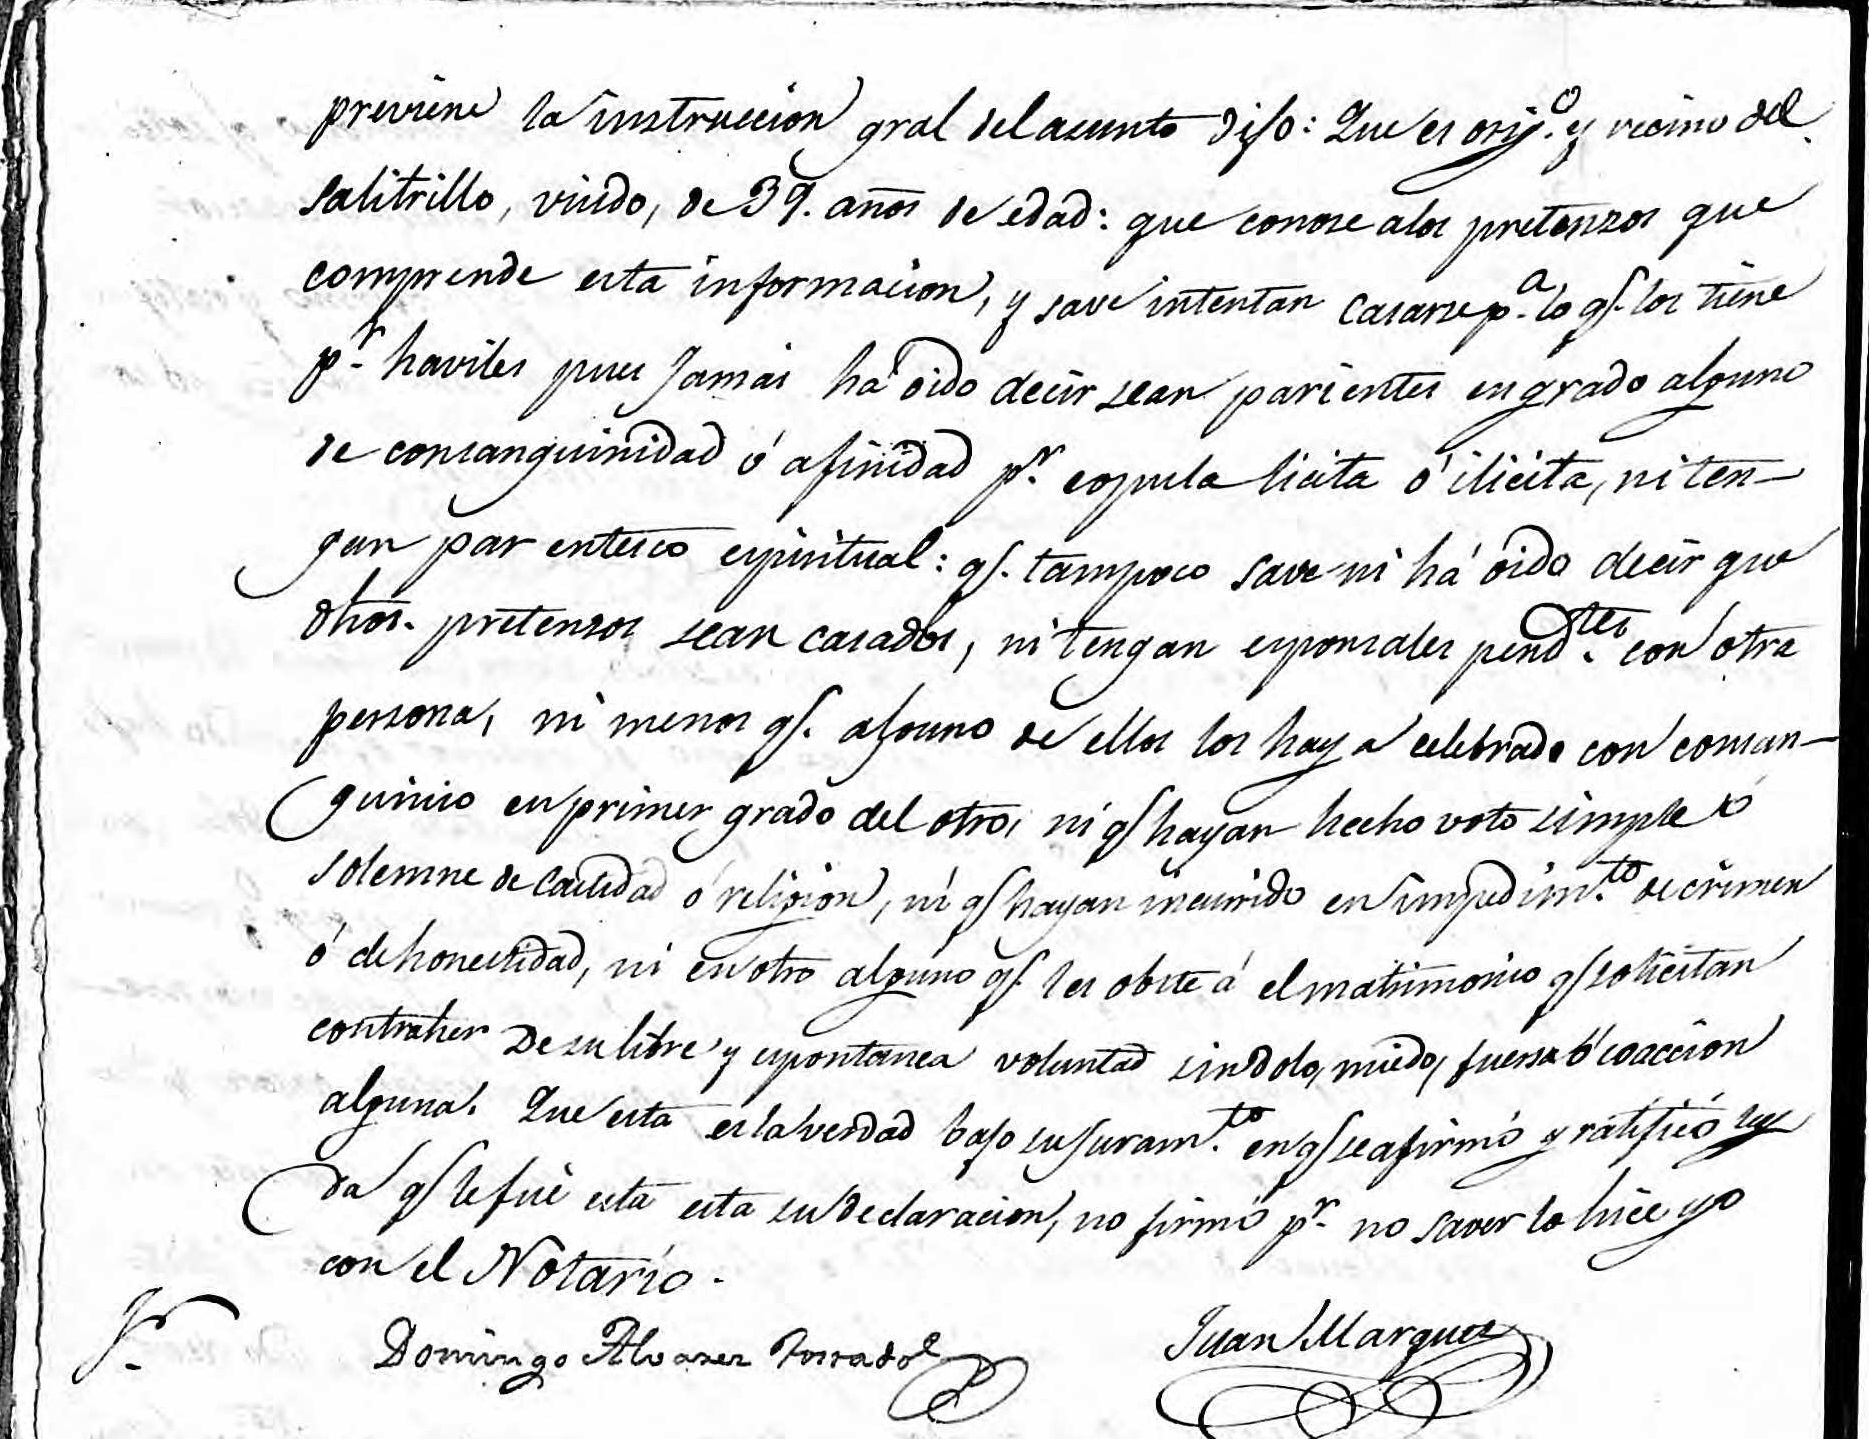 previene la instruccion gral del asunto dijo: Que es orijo. y vecino del
Salitrillo, viudo, de 39. años de edad: que conose alos pretenzos que
comprende esta informacion, y save intentan Casarse pa. lo qe. los tiene
pr. haviles pues Jamas há oido decir sean parientes en grado alguno
de consanguinidad ó afinidad pr. copula licita ó ilicita, ni ten-
gan parentesco espiritual: qe. tampoco save ni há oido decir que
dhos. pretenzos sean casados, ni tengan esponsales pendtes. con otra
persona, ni menos qe. alguno de ellos los haya celebrado con consan-
guinio en primer grado del otro, ni qe hayan hecho voto simple ó
solemne de castidad ó religion, ni qe hayan incurrido en impedimto. de crimen
ó dehonestidad, ni en otro alguno qe. les obste á el matrimonio qe solicitan
contraher De su libre y espontanea voluntad sin dolo, miedo, fuersa ó coaccion
alguna. Que esta es la verdad bajo su juramto. en qe se afirmó y ratificó ley
da qe le fué esta esta su declaracion, no firmó pr. no saver lo hice yo
con el Notario.
Domingo Alvares
Juan Marques